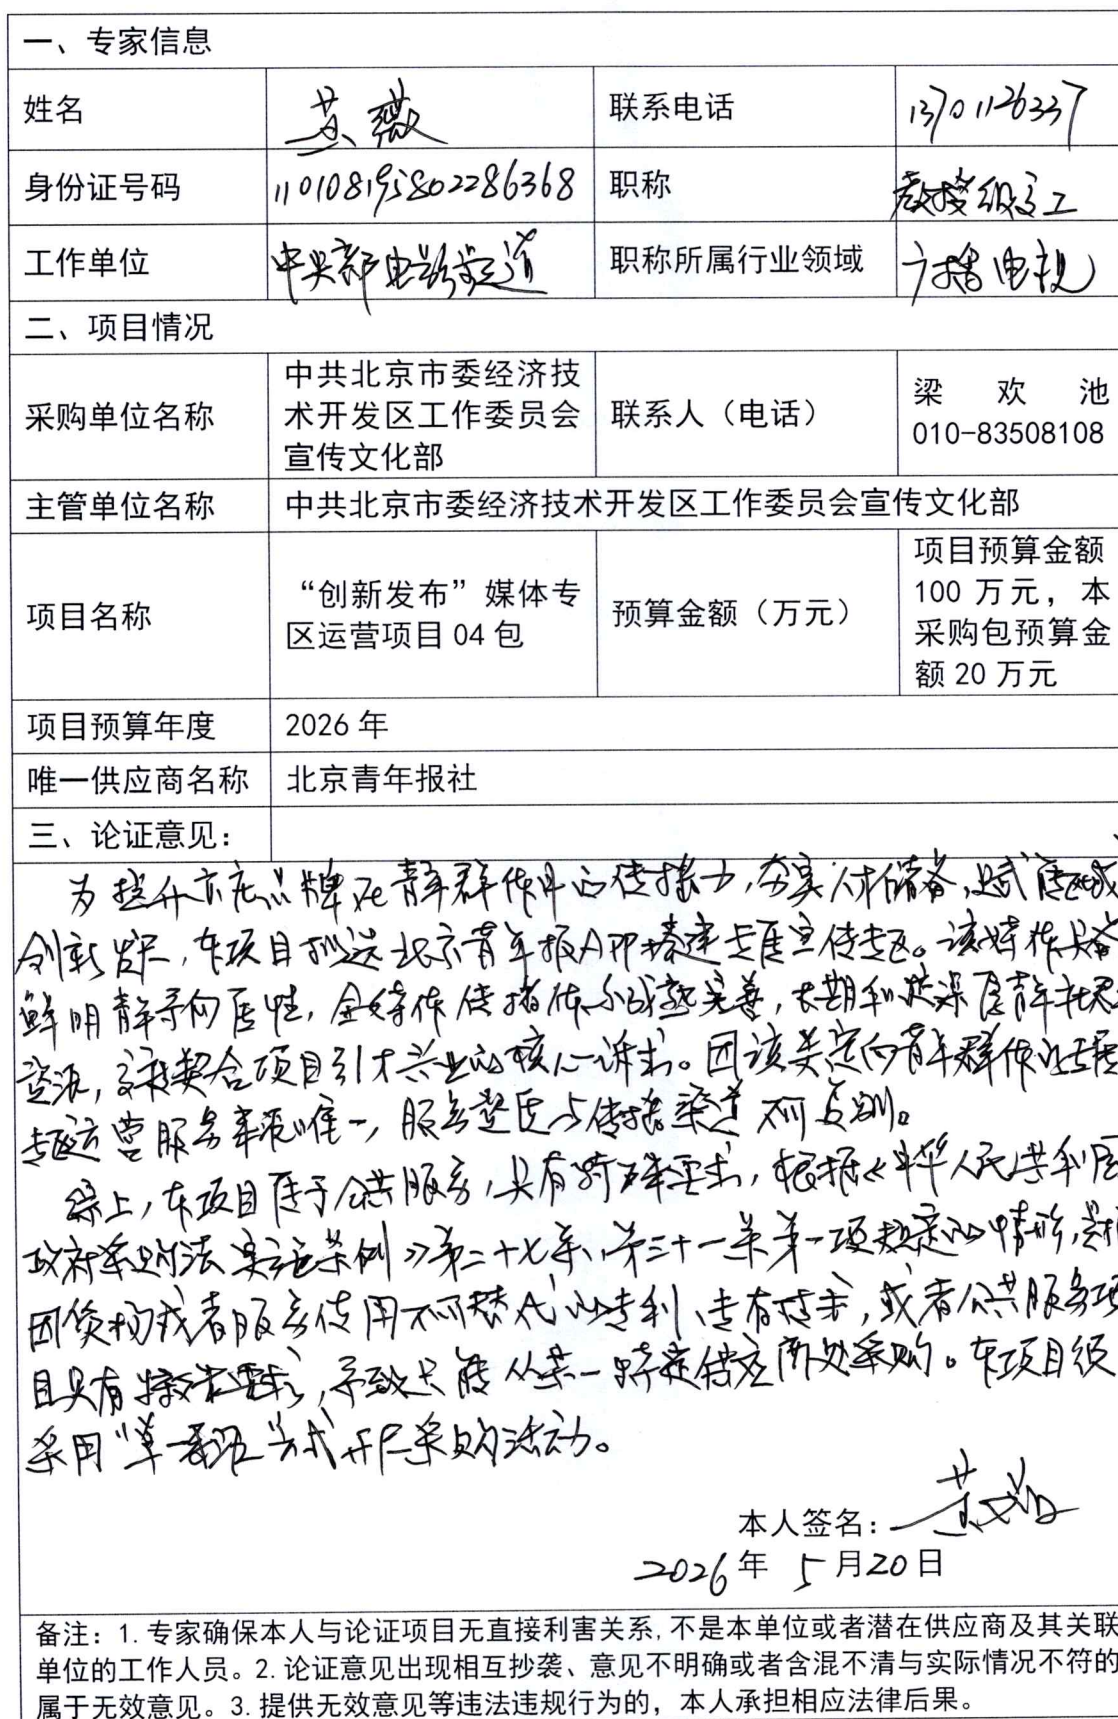 一、专家信息
姓名 黄薇 联系电话 13701126337
身份证号码 110108195802286368 职称 教授级高工
工作单位 中央新影 职称所属行业领域 广播电视
二、项目情况
采购单位名称 中共北京市委经济技
术开发区工作委员会
宣传文化部 联系人（电话） 梁欢池
010-83508108
主管单位名称 中共北京市委经济技术开发区工作委员会宣传文化部
项目名称 “创新发布”媒体专
区运营项目04包 预算金额（万元） 项目预算金额
100 万元，本
采购包预算金
额 20 万元
项目预算年度 2026 年
唯一供应商名称 北京青年报社
三、论证意见：
为提升亦庄品牌在青年群体中的传播力，夯实人才储备，赋能区域
创新发展，本项目拟选北京青年报APP搭建专属宣传专区。该媒体具备
鲜明青年导向属性，全媒体传播体系成熟完善，长期积淀深厚青年
资源，高度契合项目引才兴业的核心诉求。因该类定向青年群体的专属
专区运营服务来源唯一，服务资质与传播渠道不可复制。
综上，本项目属于公共服务，具有特殊要求，根据《中华人民共和国
政府采购法实施条例》第二十七条、第三十一条第一项规定的情形，
因货物或者服务使用不可替代的专利、专有技术，或者公共服务项
目具有特殊要求，导致只能从某一特定供应商处采购。本项目须
采用“单一来源”方式开展采购活动。
本人签名：黄薇
2026年 5月20日
备注：1.专家确保本人与论证项目无直接利害关系，不是本单位或者潜在供应商及其关联
单位的工作人员。2.论证意见出现相互抄袭、意见不明确或者含混不清与实际情况不符的
属于无效意见。3.提供无效意见等违法违规行为的，本人承担相应法律后果。